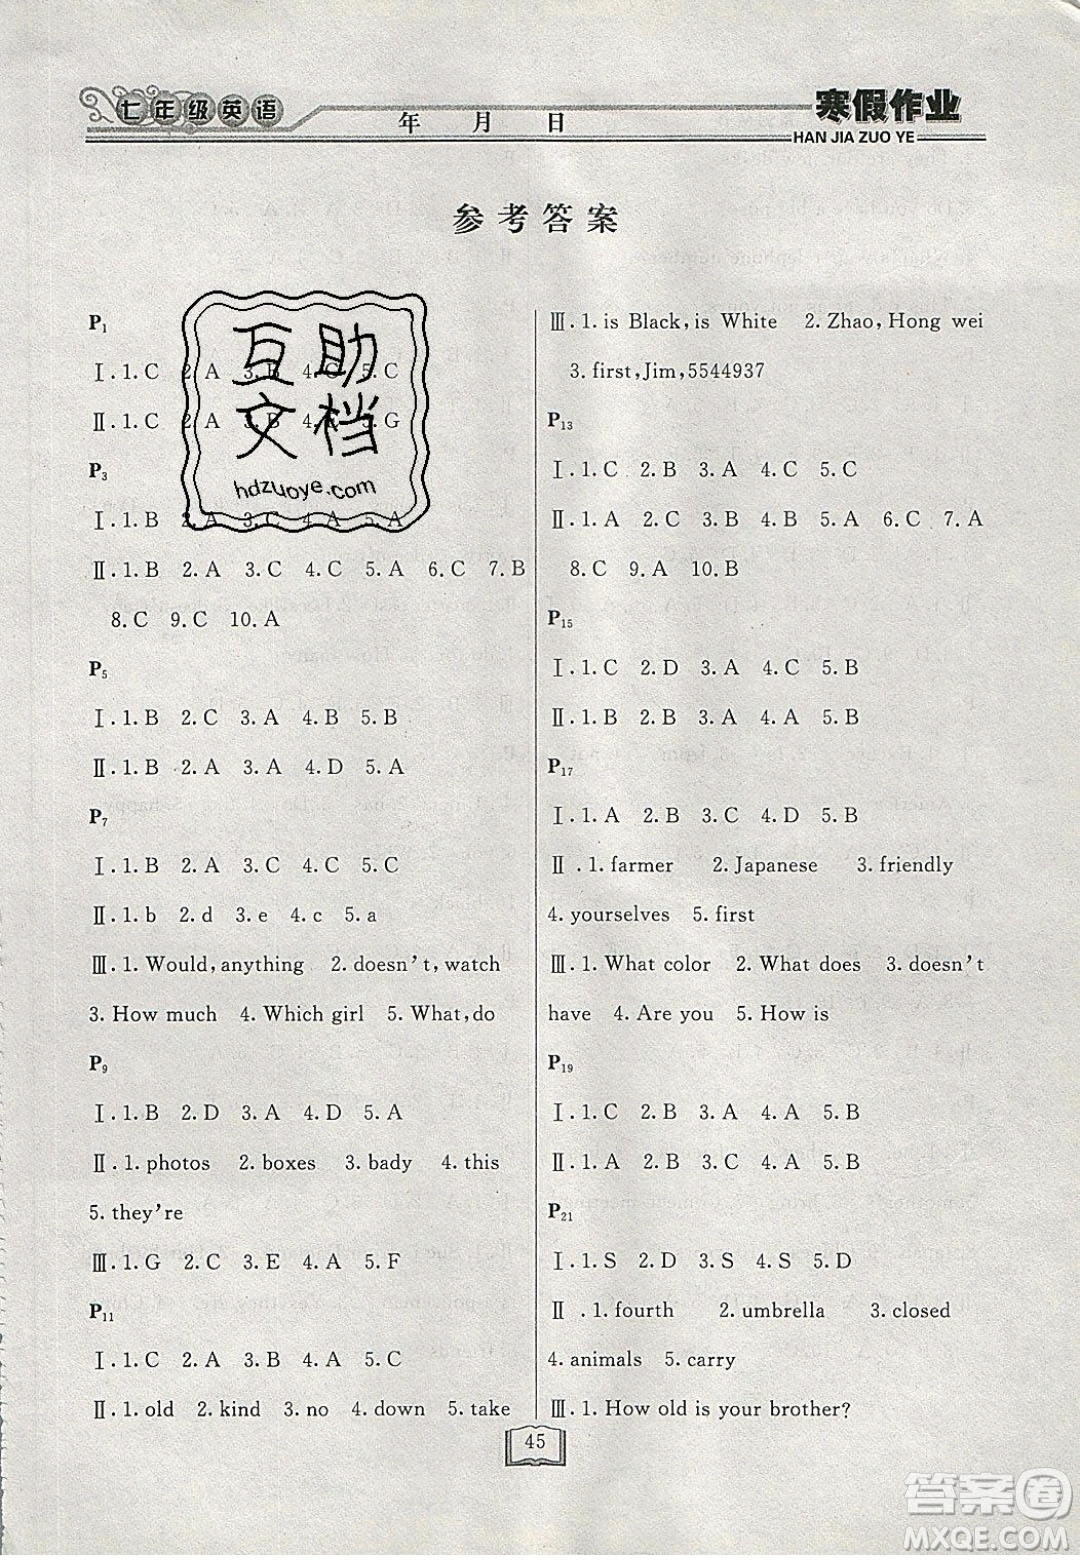 七年级英语
年 月 日
寒假作业
HAN JIA ZUO YE
参考答案
P1
Ⅰ.1.C 2.A 3.B 4.C 5.C
Ⅱ.1.C 2.A 3.B 5.G
P3
Ⅰ.1.B 2.A 3.C 4.A 5.A
Ⅱ.1.B 2.A 3.C 4.C 5.A 6.C 7.B
8.C 9.C 10.A
P5
Ⅰ.1.B 2.C 3.A 4.B 5.B
Ⅱ.1.B 2.A 3.A 4.D 5.A
P7
Ⅰ.1.B 2.B 3.C 4.A 5.C
Ⅱ.1.b 2.d 3.e 4.c 5.a
Ⅲ.1.Would,anything 2.doesn't,watch
3.How much 4.Which girl 5.What,do
P9
Ⅰ.1.B 2.D 3.A 4.A 5.A
Ⅱ.1.photos 2.boxes 3.bady 4.this
5.they're
Ⅲ.1.G 2.C 3.E 4.A 5.F
P11
Ⅰ.1.C 2.A 3.B 4.A 5.C
Ⅱ.1.old 2.kind 3.no 4.down 5.take
Ⅲ.1.is Black,is White 2.Zhao,Hong wei
3.first,Jim,5544937
P13
Ⅰ.1.C 2.B 3.A 4.C 5.C
Ⅱ.1.A 2.C 3.B 4.B 5.A 6.C 7.A
8.C 9.A 10.B
P15
Ⅰ.1.C 2.D 3.A 4.C 5.B
Ⅱ.1.B 2.B 3.A 4.A 5.B
P17
Ⅰ.1.A 2.B 3.C 4.D 5.B
Ⅱ.1.farmer 2.Japanese 3.friendly
4.yourselves 5.first
Ⅲ.1.What color 2.What does 3.doesn't
have 4.Are you 5.How is
P19
Ⅰ.1.C 2.B 3.A 4.A 5.B
Ⅱ.1.A 2.B 3.C 4.B 5.B
P21
Ⅰ.1.S 2.D 3.S 4.S 5.D
Ⅱ.1.fourth 2.umbrella 3.closed
4.animals 5.carry
Ⅲ.1.How old is your brother?
45
互助
文档
hdzuoye.com
答案圈
MXQE.COM